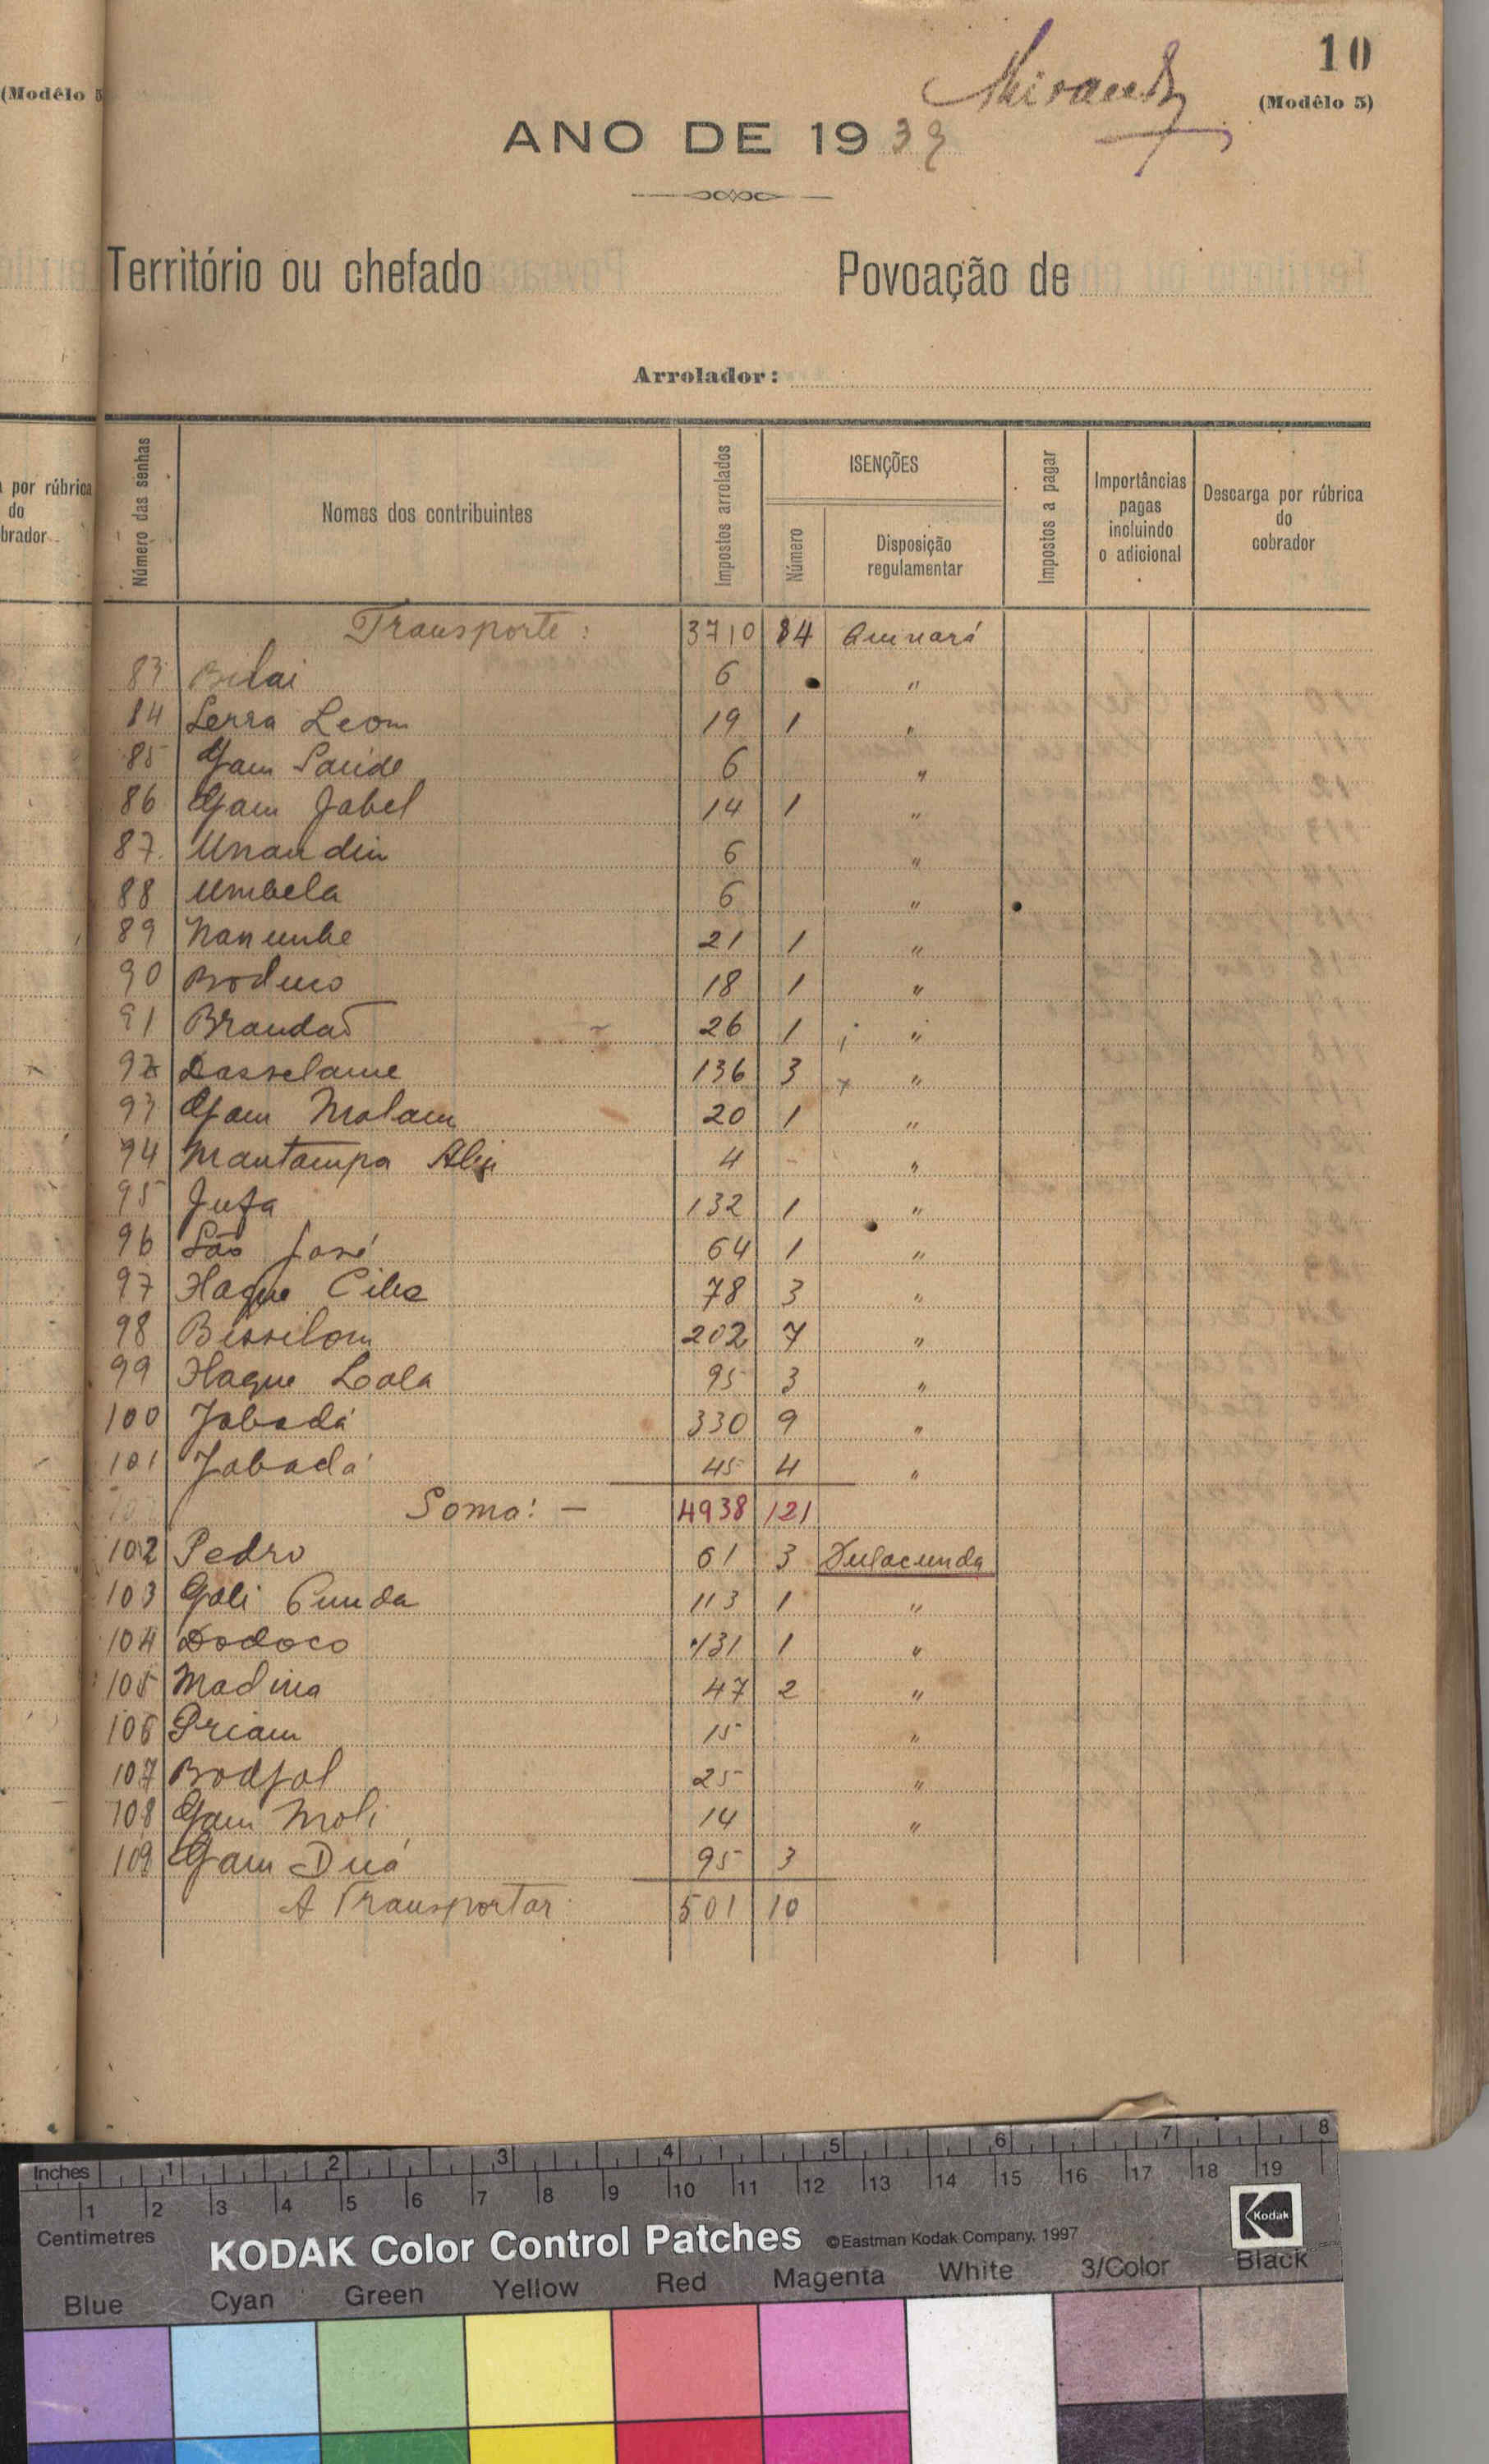 (Modêlo 5
10
Miranda
(Modêlo 5)
ANO DE 1939
Território ou chefado Povoação de
Arrolador:
por rúbrica
do
brador
Número das senhas
Nomes dos contribuintes
Impostos arrolados
ISENÇÕES
Número
Disposição
regulamentar
Impostos a pagar
Importâncias
pagas
incluindo
o adicional
Descarga por rúbrica
do
cobrador
Transporte: 3710 84 Quinará
83 Belai 6 "
84 Serra Leom 19 1 "
85 Gam Saúde 6 "
86 Gam Jabel 14 1 "
87 Unandin 6 "
88 Umbela 6 "
89 Nanumbe 21 1 "
90 18 1 "
91 Brandão 26 1 "
92 Dasselame 136 3 "
93 Gam Malam 20 1 "
94 Mantampa 4 - "
95 Jufa 132 1 "
96 São José 64 1 "
97 78 3 "
98 Bissilom 202 7 "
99 Lala 95 3 "
100 Jabadá 330 9 "
101 Jabadá 45 4 "
Soma: - 4938 121
102 Pedro 61 3 Fulacunda
103 Gali Cunda 113 1 "
104 Dodoco 131 1 "
105 Madina 47 2 "
106 Priam 15 "
107 Bodjol 25 "
108 Gam Moli 14 "
109 Gam Duá 95 3
A Transportar: 501 10
Inches 1 2 3 4 5 6 7 8
1 2 3 4 5 6 7 8 9 10 11 12 13 14 15 16 17 18 19
Centimetres
KODAK Color Control Patches ©Eastman Kodak Company, 1997 Kodak
Blue Cyan Green Yellow Red Magenta White 3/Color Black